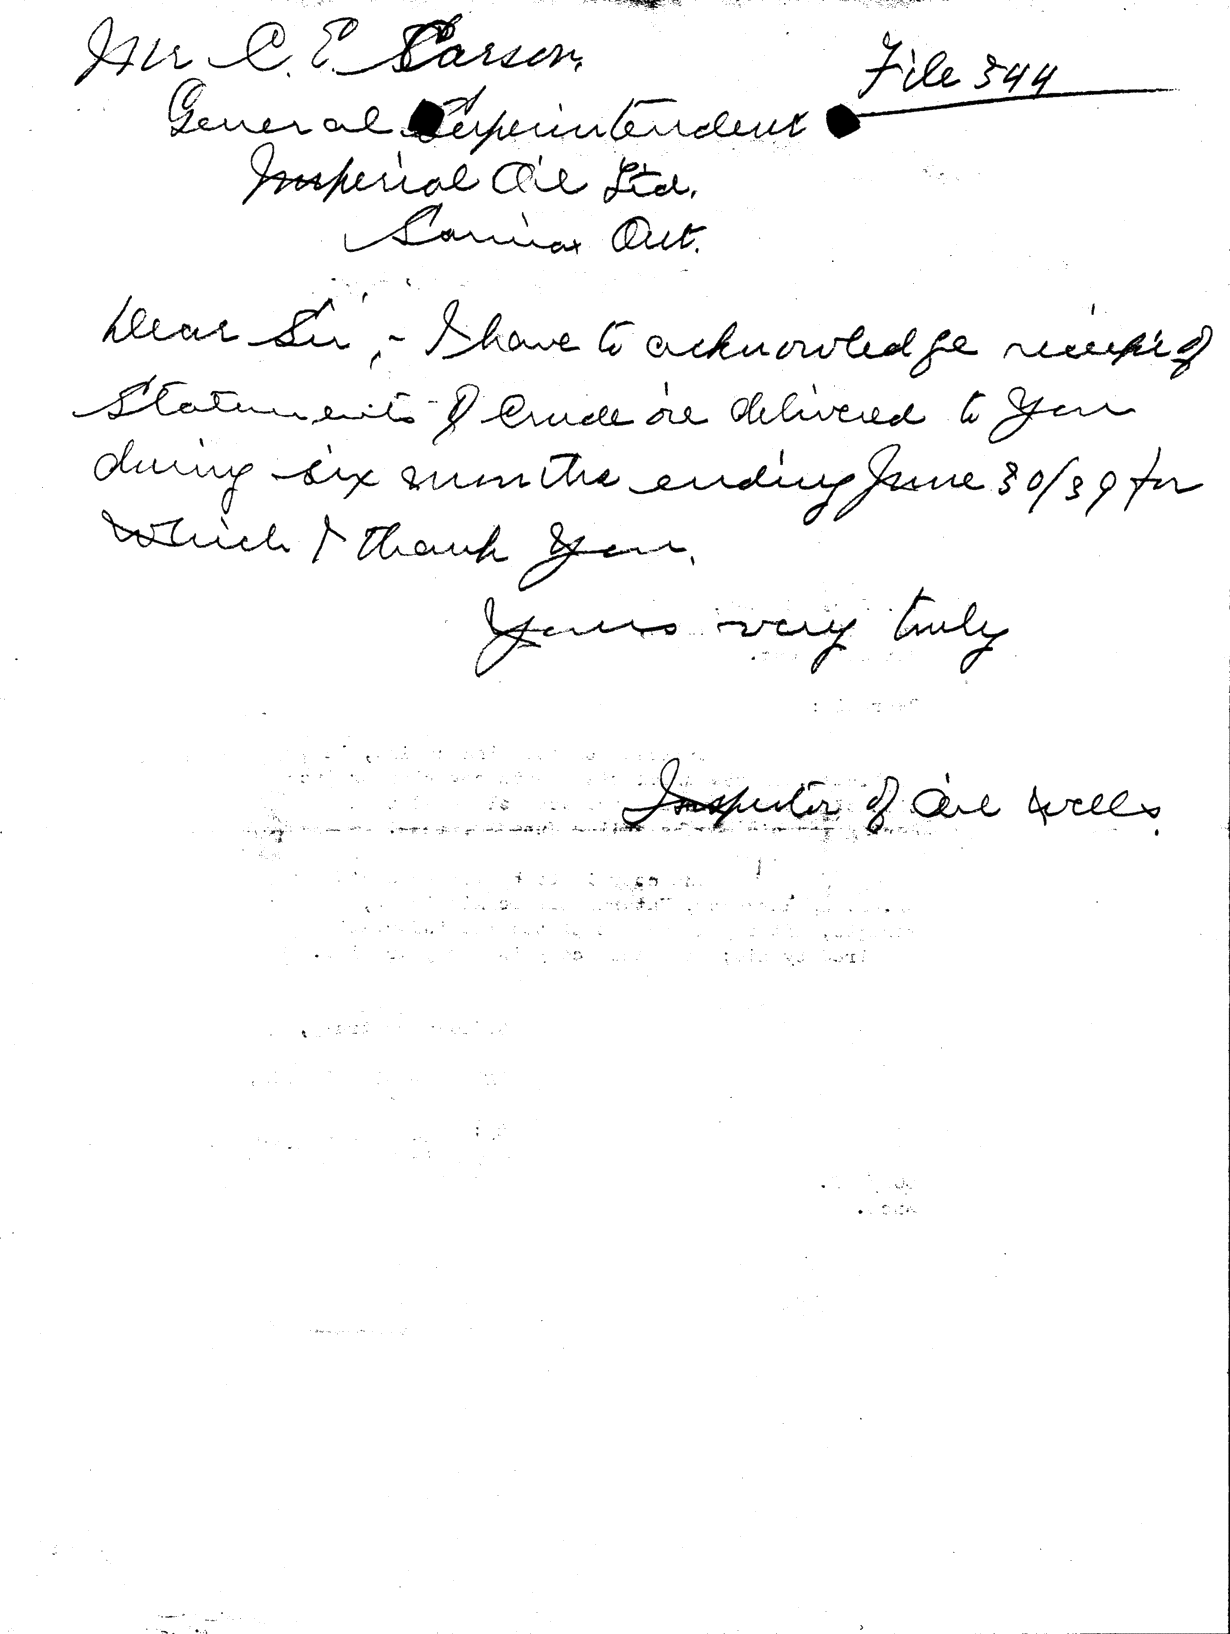 Mr C. E. Carson.
File 344
General Superintendent
Imperial Oil Ltd.
Sarnia Ont.
Dear Sir,- I have to acknowledge receipt of
Statements of Crude oil delivered to You
during six months ending June 30/39 for
Which I thank You.
Yours very truly
Inspector of Oil Wells.